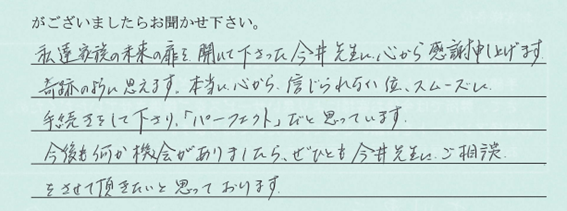 がございましたらお聞かせ下さい。
私達家族の未来の扉を開いて下さった今井先生に、心から感謝申し上げます
奇跡の様に思えます。本当に心から、信じられない位、スムーズに
手続きをして下さり、「パーフェクト」だと思っています。
今後も何か機会がありましたら、ぜひとも今井先生に、ご相談
をさせて頂きたいと思っております。